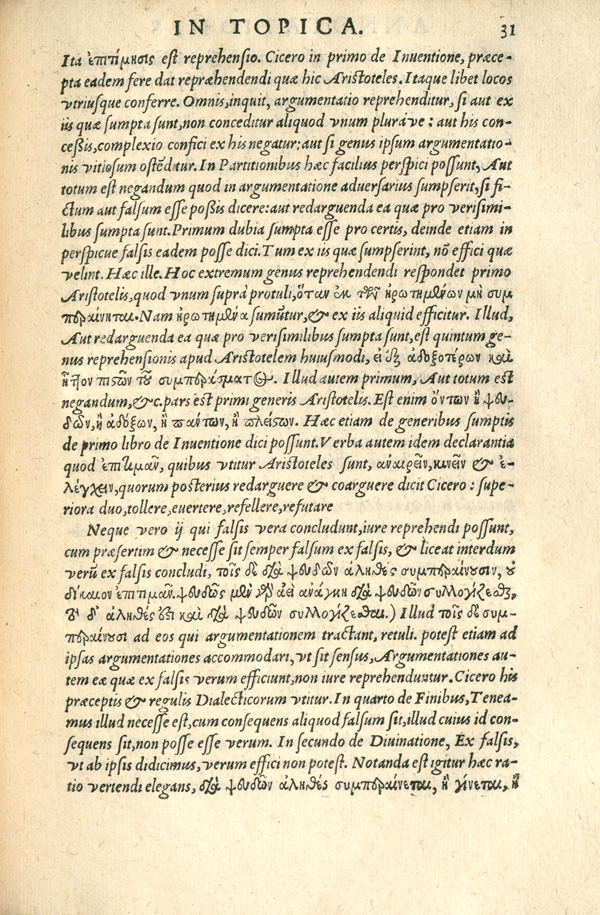 IN TOPICA. 31
Ita ἐπιτίμησις est reprehensio. Cicero in primo de Inuentione, præce-
pta eadem fere dat repræhendendi quæ hic Aristoteles. Itaque libet locos
vtriusque conferre. Omnis, inquit, argumentatio reprehenditur, si aut ex
iis quæ sumpta sunt, non conceditur aliquod vnum plurave: aut his con-
ceßis, complexio confici ex his negatur: aut si genus ipsum argumentatio-
nis vitiosum ostēditur. In Partitionibus hæc facilius perspici possunt, Aut
totum est negandum quod in argumentatione adversarius sumpserit, si fi-
ctum aut falsum esse poßis dicere: aut redarguenda ea quæ pro verisimi-
libus sumpta sunt. Primum dubia sumpta esse pro certis, deinde etiam in
perspicue falsis eadem posse dici. Tum ex iis quæ sumpserint, nō effici quæ
velint. Hæc ille. Hoc extremum genus reprehendendi respondet primo
Aristotelis, quod vnum suprà protuli, ὅταν ἐκ τῶν ἠρωτημένων μὴ συμ
περαίνηται. Nam ἠρωτημένα sumūtur, & ex iis aliquid efficitur. Illud,
Aut redarguenda ea quæ pro verisimilibus sumpta sunt, est quintum ge-
nus reprehensionis apud Aristotelem huiusmodi, εἰ ἐξ ἀδοξοτέρων καὶ
ἧττον πιστῶν τοῦ συμπεράσματος. Illud autem primum, Aut totum est
negandum, &c. pars est primi generis Aristotelis. Est enim ὄντων ἢ ψευ-
δῶν, ἢ ἀδόξων, ἢ πάντων, ἢ πλείστων. Hæc etiam de generibus sumptis
de primo libro de Inuentione dici possunt. Verba autem idem declarantia
quod ἐπιτιμᾶν, quibus vtitur Aristoteles sunt, ἀναιρεῖν, κινεῖν & ἐ-
λέγχειν, quorum posterius redarguere & coarguere dicit Cicero: supe-
riora duo, tollere, euertere, refellere, refutare
Neque vero ij qui falsis vera concludunt, iure reprehendi possunt,
cum præsertim & necesse sit semper falsum ex falsis, & liceat interdum
verū ex falsis concludi, τοῖς δὲ διὰ ψευδῶν ἀληθὲς συμπεραίνουσιν, οὐ
δίκαιον ἐπιτιμᾶν. ψεῦδος μὲν γὰρ ἀεὶ ἀνάγκη διὰ ψευδῶν συλλογίζεσθαι,
τὸ δ' ἀληθὲς ἔστι καὶ διὰ ψευδῶν συλλογίζεσθαι.) Illud τοῖς δὲ συμ-
περαίνουσι ad eos qui argumentationem tractant, retuli. potest etiam ad
ipsas argumentationes accommodari, vt sit sensus, Argumentationes au-
tem eæ quæ ex falsis verum efficiunt, non iure reprehenduntur. Cicero his
præceptis & regulis Dialecticorum vtitur. In quarto de Finibus, Tenea-
mus illud necesse est, cum consequens aliquod falsum sit, illud cuius id con-
sequens sit, non posse esse verum. In secundo de Diuinatione, Ex falsis,
vt ab ipsis didicimus, verum effici non potest. Notanda est igitur hæc ra-
tio vertendi elegans, διὰ ψευδῶν ἀληθὲς συμπεραίνεται, ἢ γίνεται, ἢ